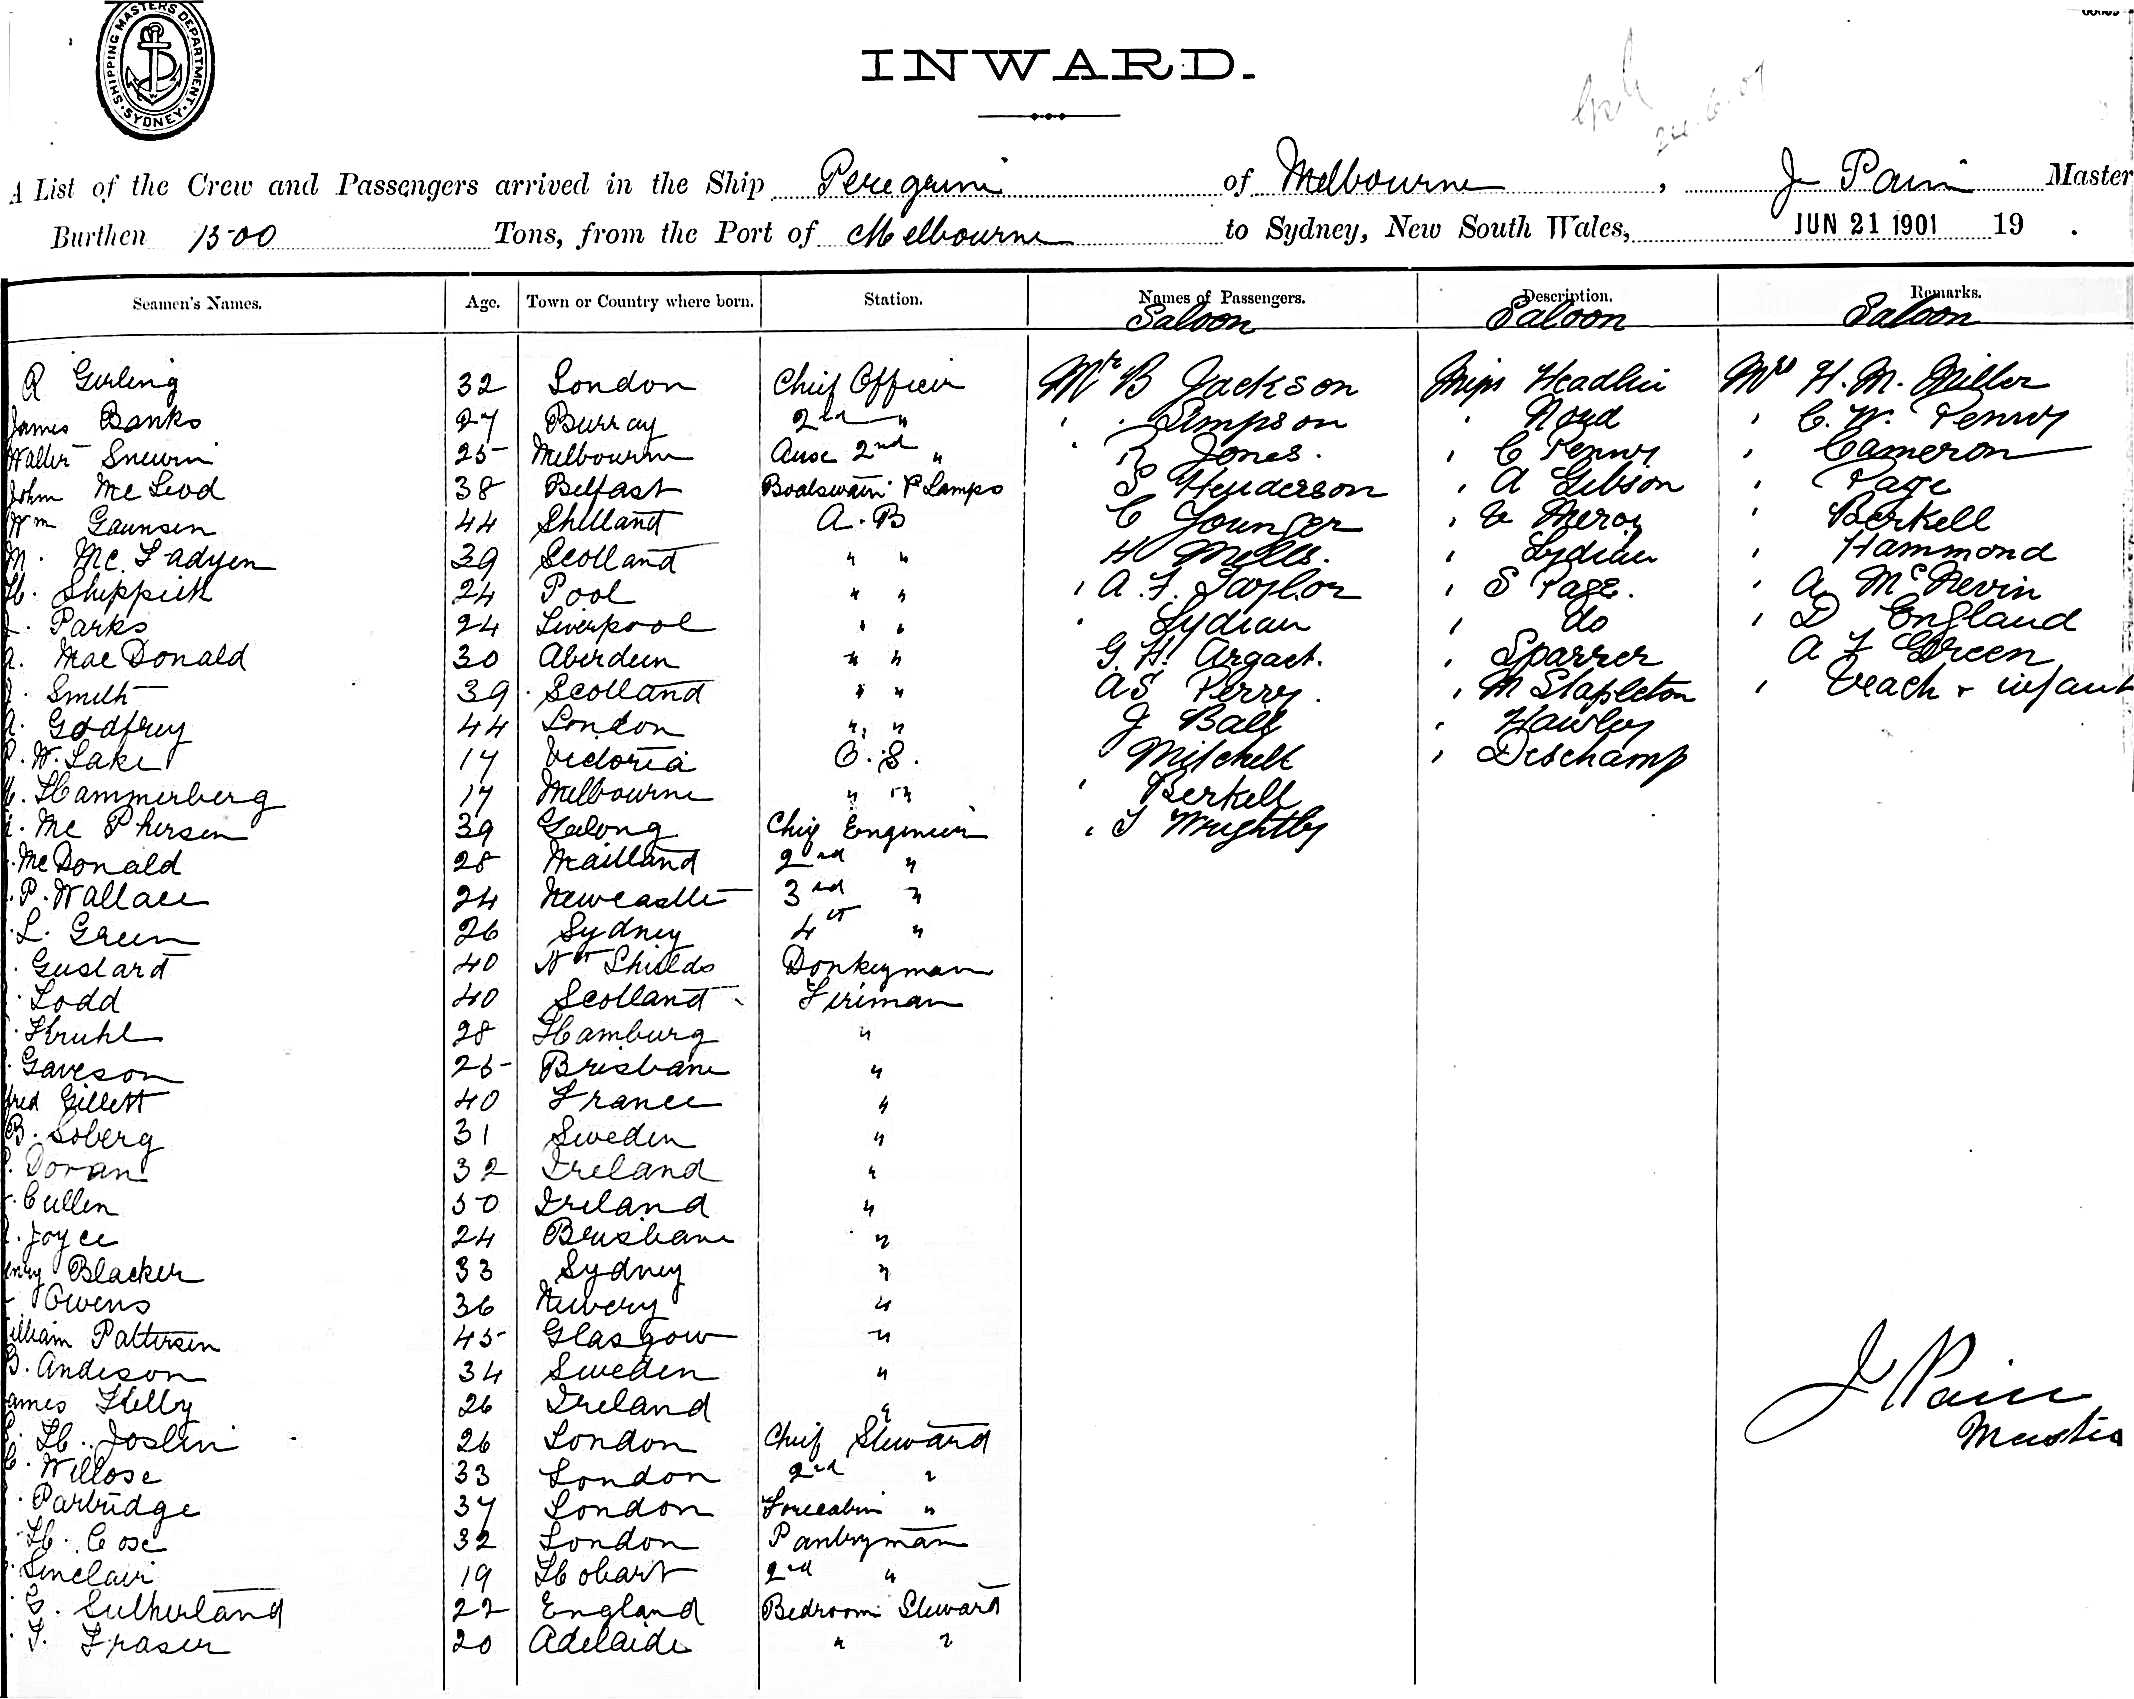 SHIPPING MASTERS DEPARTMENT SYDNEY
INWARD.
24.6.01
A List of the Crew and Passengers arrived in the Ship Peregrine of Melbourne, J Pain Master
Burthen 1500 Tons, from the Port of Melbourne to Sydney, New South Wales, JUN 21 1901 19 .
Seamen's Names. Age. Town or Country where born. Station. Names of Passengers. Description. Remarks.
Saloon Saloon Saloon
R Gerling 32 London Chief Officer Mr B Jackson Miss Headlin Mrs H. M. Miller
James Banks 27 Burray 2nd " Simpson Noyd " C. W. Penny
Walter 25 Melbourne 2nd " R Jones. " C Penny " Cameron
John McLeod 38 Belfast Boatswain & Lamps S Henderson " A Gibson " Page
Wm Gaunsen 44 Shetland A. B C Younger " Meroy " Berkell
M. McFadyen 39 Scotland " " H Mells. " Lydian " Hammond
H. Shippick 24 Pool " " " A. F. Taylor " S Page. " A McNevin
Parks 24 Liverpool " " " Lydian " do " D England
MacDonald 30 Aberdeen " " G. H. Argaet. " Sparrer A F Green
Smith 39 Scotland " " A S Perry. " M Stapleton " Veach & infant
Godfrey 44 London " " J Ball " Hawley
W. Lake 17 Victoria O. S. Mitchell " Deschamp
Hammerberg 17 Melbourne " " " Berkell
McPhersen 39 Gelong Chief Engineer " T Wrightby
McDonald 28 Maitland 2nd "
P. Wallace 24 Newcastle 3rd "
L. Green 26 Sydney 4th "
Gustard 40 Nth Shields Donkeyman
Todd 40 Scotland Fireman
Kruhl 28 Hamburg "
Gaveson 25 Brisbane "
fred Gillett 40 France "
B. Soberg 31 Sweden "
Doran 32 Ireland "
Cullen 50 Ireland "
Joyce 24 Brisbane "
enry Blacker 33 Sydney "
Owens 36 Newery "
illiam Pattersen 45 Glasgow "
Andeson 34 Sweden "
ames Kelly 26 Ireland "
H. Joslin 26 London Chief Steward
Willose 33 London 2nd "
Partridge 37 London Forecabin "
H. Cose 32 London Pantryman
Sinclair 19 Hobart 2nd "
G. Sutherland 22 England Bedroom Steward
T. Fraser 20 Adelaide " "
J Pain
Master